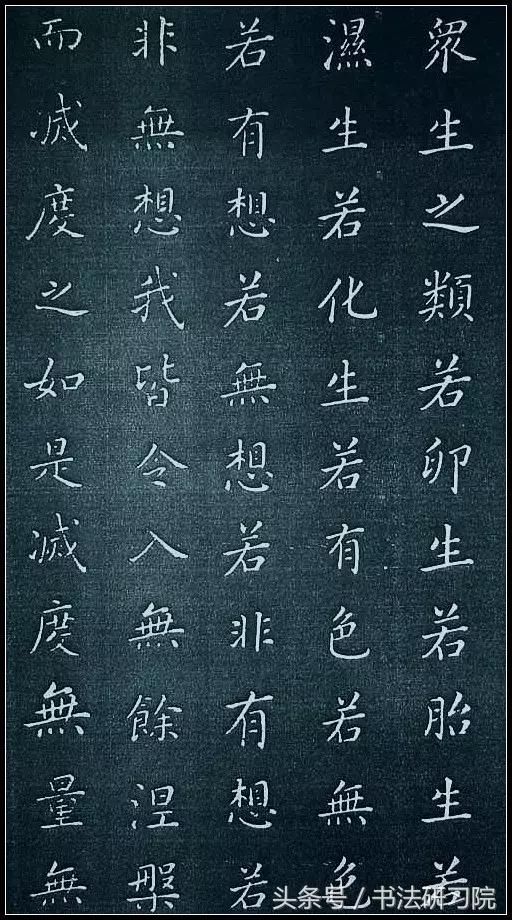 眾生之類若卵生若胎生若
濕生若化生若有色若無色
若有想若無想若非有想若
非無想我皆令入無餘涅槃
而滅度之如是滅度無量無
头条号 / 书法研习院